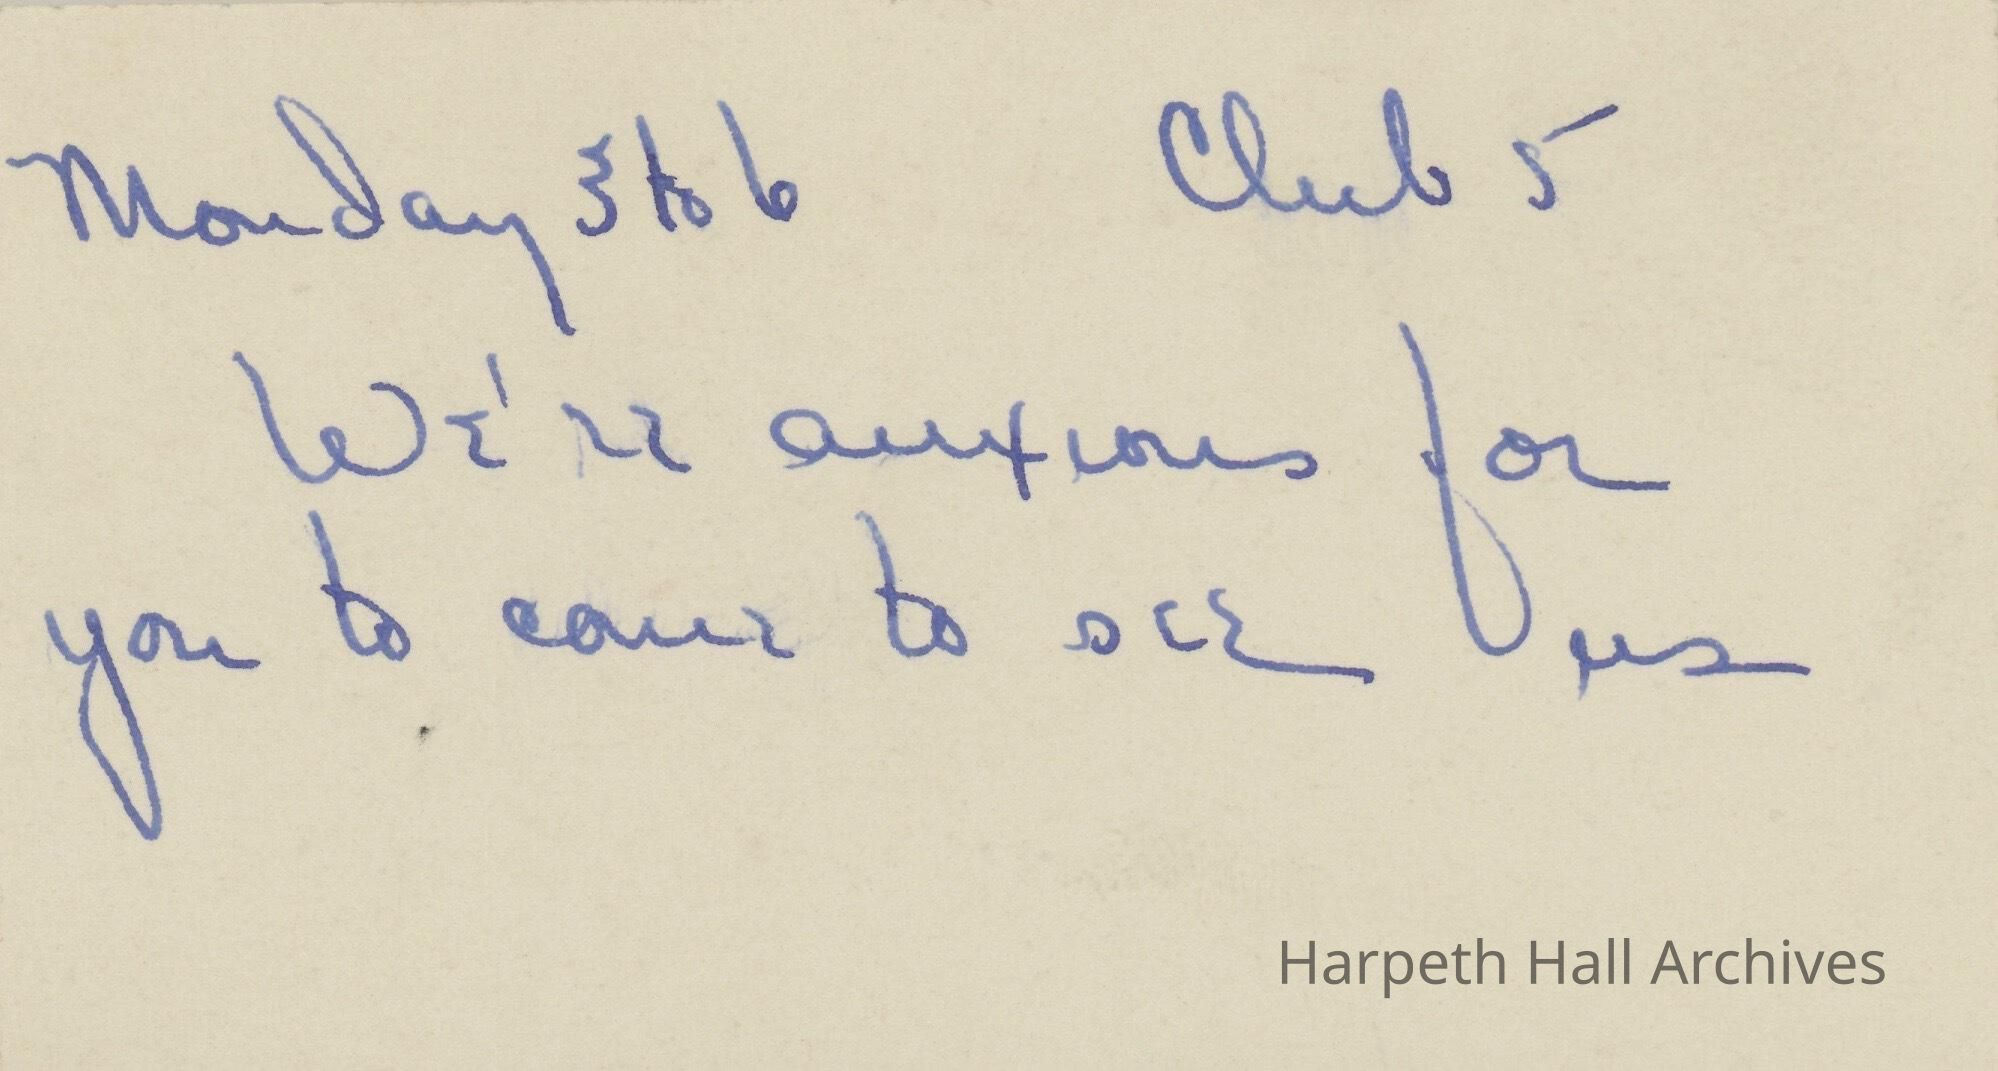 Monday 3 to 6 Club 5
We're anxious for
you to come to see us
Harpeth Hall Archives